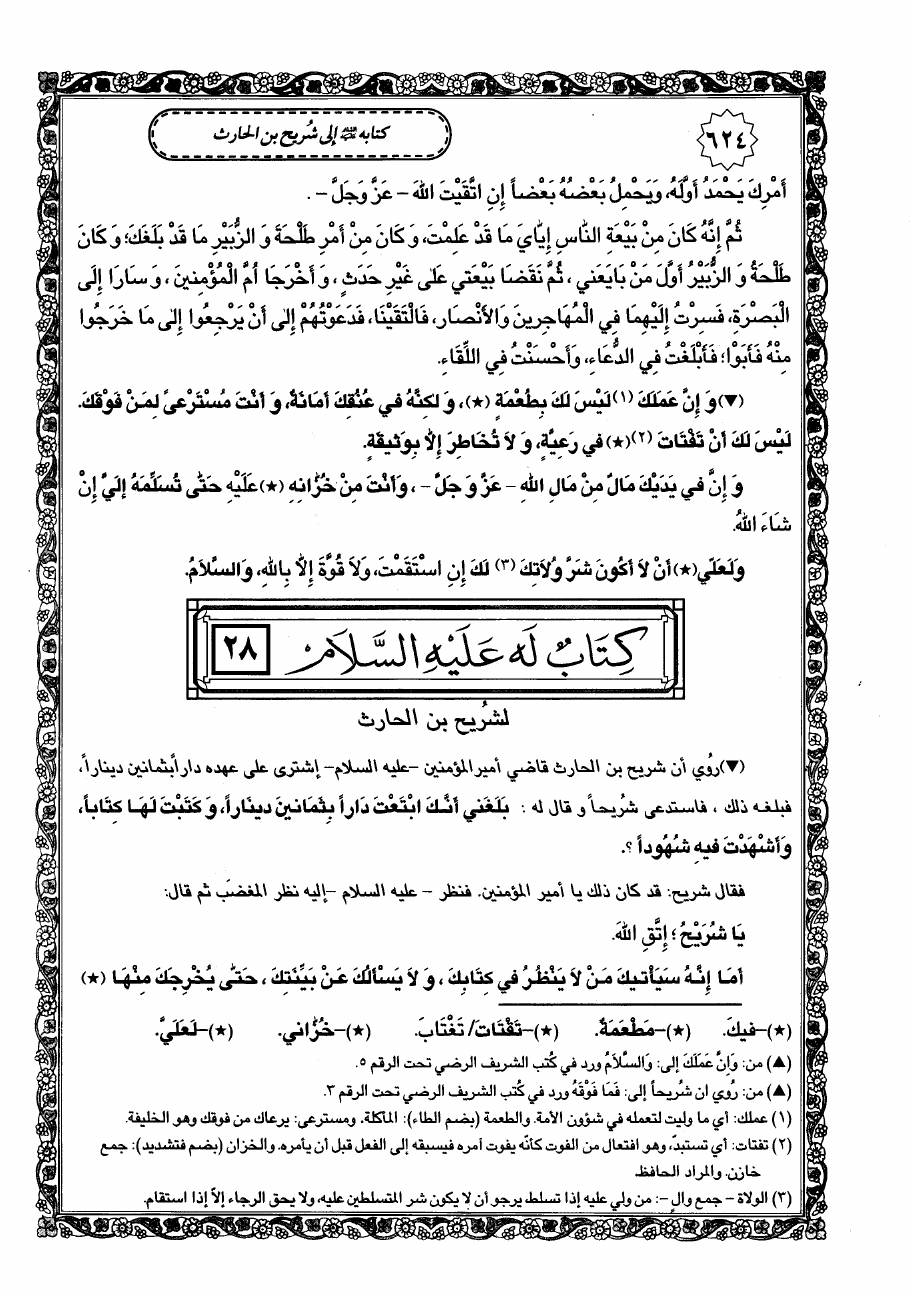 ٦٢٤
كتابه ﷺ إلى شُريح بن الحارث
أَمْرِكَ يَحْمَدُ أَوَّلَهُ، وَيَحْمِلُ بَعْضُهُ بَعْضاً إِنِ اتَّقَيْتَ اللهَ – عَزَّ وَجَلَّ – .
ثُمَّ إِنَّهُ كَانَ مِنْ بَيْعَةِ النَّاسِ إِيَّايَ مَا قَدْ عَلِمْتَ، وَكَانَ مِنْ أَمْرِ طَلْحَةَ وَ الزُّبَيْرِ مَا قَدْ بَلَغَكَ؛ وَ كَانَ
طَلْحَةُ وَ الزُّبَيْرُ أَوَّلَ مَنْ بَايَعَني ، ثُمَّ نَقَضَا بَيْعَتي عَلىٰ غَيْرِ حَدَثٍ ، وَ أَخْرَجَا أُمَّ الْمُؤْمنينَ ، وَ سَارَا إِلَى
الْبَصْرَةِ، فَسِرْتُ إِلَيْهِمَا فِي الْمُهَاجِرينَ وَالأَنْصَارِ، فَالْتَقَيْنَا، فَدَعَوْتُهُمْ إِلى أَنْ يَرْجِعُوا إِلى مَا خَرَجُوا
مِنْهُ فَأَبَوْا؛ فَأَبْلَغْتُ فِي الدُّعَاءِ، وَأَحْسَنْتُ فِي اللِّقَاءِ.
(▼) وَ إِنَّ عَمَلَكَ (١) لَيْسَ لَكَ بِطُعْمَةٍ (★)، وَ لكِنَّهُ في عُنُقِكَ أَمَانَةٌ، وَ أَنْتَ مُسْتَرْعىً لِمَنْ فَوْقَكَ.
لَيْسَ لَكَ أَنْ تَفْتَاتَ (٢)(★) في رَعِيَّةٍ، وَ لاَ تُخَاطِرَ إِلاَّ بِوَثيقَةٍ.
وَ إِنَّ في يَدَيْكَ مَالٌ مِنْ مَالِ اللهِ – عَزَّ وَ جَلَّ – ، وَأَنْتَ مِنْ خُزَّانِهِ (★) عَلَيْهِ حَتّىٰ تُسَلِّمَهُ إِلَيَّ إِنْ
شَاءَ اللهُ.
وَلَعَلّي (★) أَنْ لاَ أَكُونَ شَرَّ وُلاَتِكَ (٣) لَكَ إِنِ اسْتَقَمْتَ، وَلاَ قُوَّةَ إِلاَّ بِاللهِ، وَالسَّلاَمُ.
كِتَابٌ لَه عَلَيْهِ السَّلاَم ٢٨
لشُريح بن الحارث
(▼) رُوي أن شريح بن الحارث قاضي أميرالمؤمنين –عليه السلام– إشترى على عهده داراً بثمانين ديناراً،
فبلغه ذلك ، فاستدعى شُريحاً و قال له : بَلَغَني أَنَّكَ ابْتَعْتَ دَاراً بِثَمَانينَ ديناراً، وَ كَتَبْتَ لَهَا كِتَاباً،
وَأَشْهَدْتَ فيهِ شُهُوداً ؟.
فقال شريح: قد كان ذلك يا أمير المؤمنين. فنظر – عليه السلام –إليه نظر المغضَب ثم قال:
يَا شُرَيْحُ ؛ إِتَّقِ اللهَ.
أَمَا إِنَّهُ سَيَأْتيكَ مَنْ لاَ يَنْظُرُ في كِتَابِكَ ، وَ لاَ يَسْأَلُكَ عَنْ بَيِّنَتِكَ ، حَتّىٰ يُخْرِجَكَ مِنْهَا (★)
(★)–فيكَ. (★)–مَطْعَمَةٌ. (★)–تَقْتَاتَ/ تَغْتَابَ. (★)–خُزَّاني. (★)–لَعَلَيَّ.
(▲) من: وَإِنَّ عَمَلَكَ إلى: وَالسَّلاَمُ ورد في كُتب الشريف الرضي تحت الرقم ٥.
(▲) من: رُوي ان شُريحاً إلى: فَمَا فَوْقَهُ ورد في كُتب الشريف الرضي تحت الرقم ٣.
(١) عملك: أي ما وليت لتعمله في شؤون الأمة. والطعمة (بضم الطاء): المأكلة. ومسترعى: يرعاك من فوقك وهو الخليفة.
(٢) تفتات: أي تستبدّ، وهو افتعال من الفوت كأنّه يفوت أمره فيسبقه إلى الفعل قبل أن يأمره. والخزان (بضم فتشديد): جمع
خازن. والمراد الحافظ.
(٣) الولاة – جمع والٍ –: من ولي عليه إذا تسلط. يرجو أن لا يكون شر المتسلطين عليه، ولا يحق الرجاء إلاّ إذا استقام.